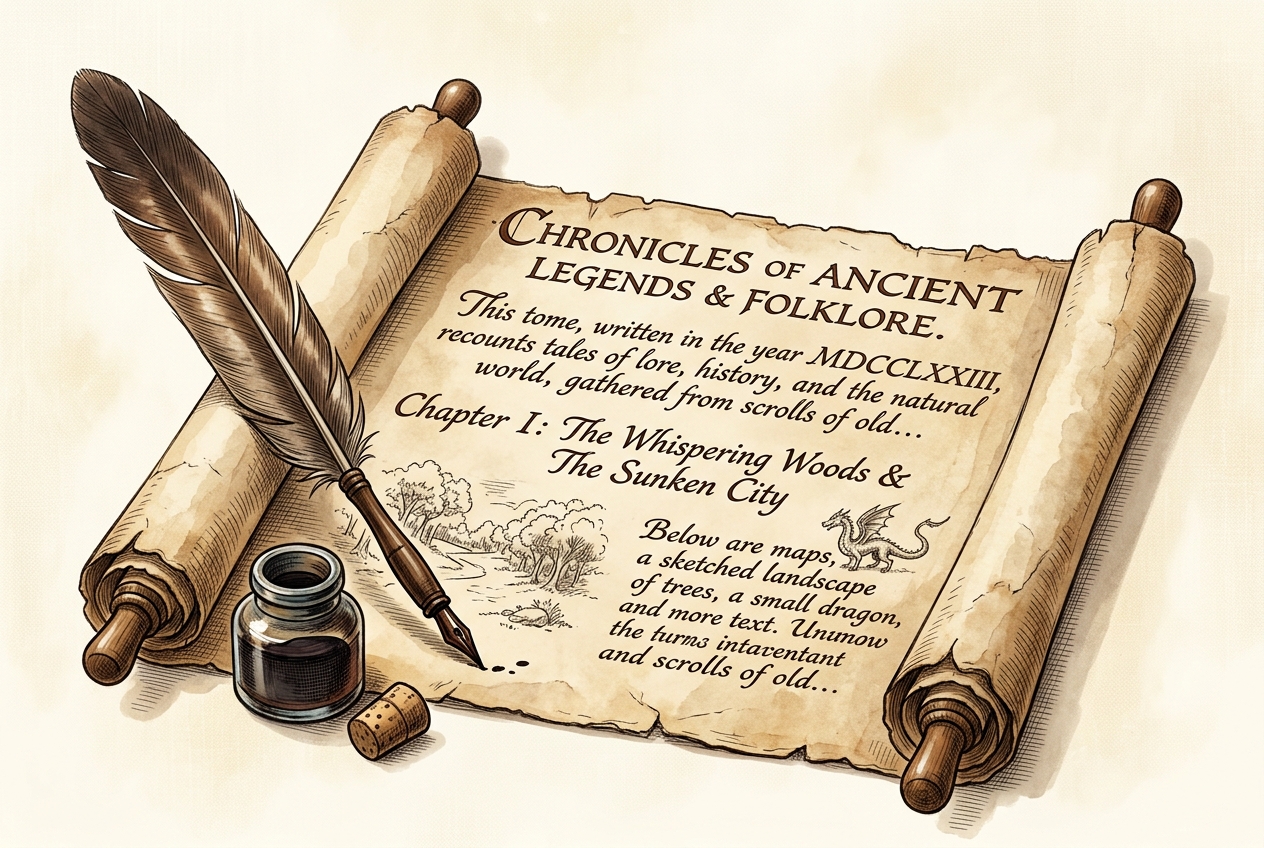 CHRONICLES OF ANCIENT
LEGENDS & FOLKLORE.
This tome, written in the year MDCCLXXIII,
recounts tales of lore, history, and the natural
world, gathered from scrolls of old...
Chapter I: The Whispering Woods &
The Sunken City
Below are maps,
a sketched landscape
of trees, a small dragon,
and more text. Unumow
the turns intaventant
and scrolls of old...